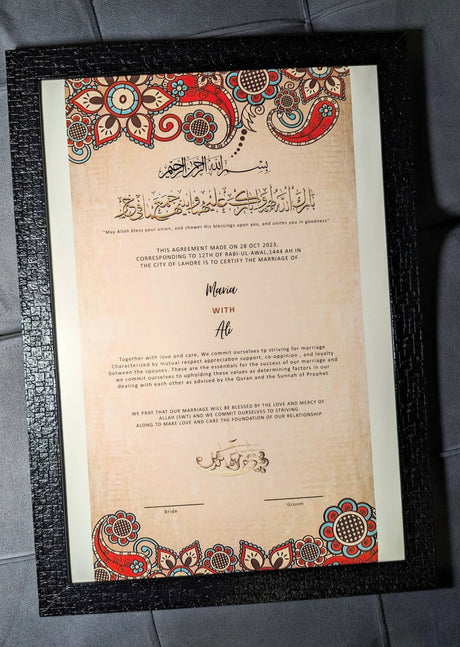 بسم الله الرحمن الرحيم
"May Allah bless your union, and shower His blessings upon you, and unites you in goodness"
THIS AGREEMENT MADE ON 28 OCT 2023,
CORRESPONDING TO 12TH OF RABI-UL-AWAL,1444 AH IN
THE CITY OF LAHORE IS TO CERTIFY THE MARRIAGE OF
Maria
WITH
Ali
Together with love and care, We commit ourselves to striving for marriage
Characterized by mutual respect appreciation support, co-oppinion , and loyalty
between the spouses. These are the essentials for the success of our marriage and
we commit ourselves to upholding these values as determining factors in our
dealing with each other as advised by the Quran and the Sunnah of Prophet.
WE PRAY THAT OUR MARRIAGE WILL BE BLESSED BY THE LOVE AND MERCY OF
ALLAH (SWT) AND WE COMMIT OURSELVES TO STRIVING
ALONG TO MAKE LOVE AND CARE THE FOUNDATION OF OUR RELATIONSHIP
Bride
Groom